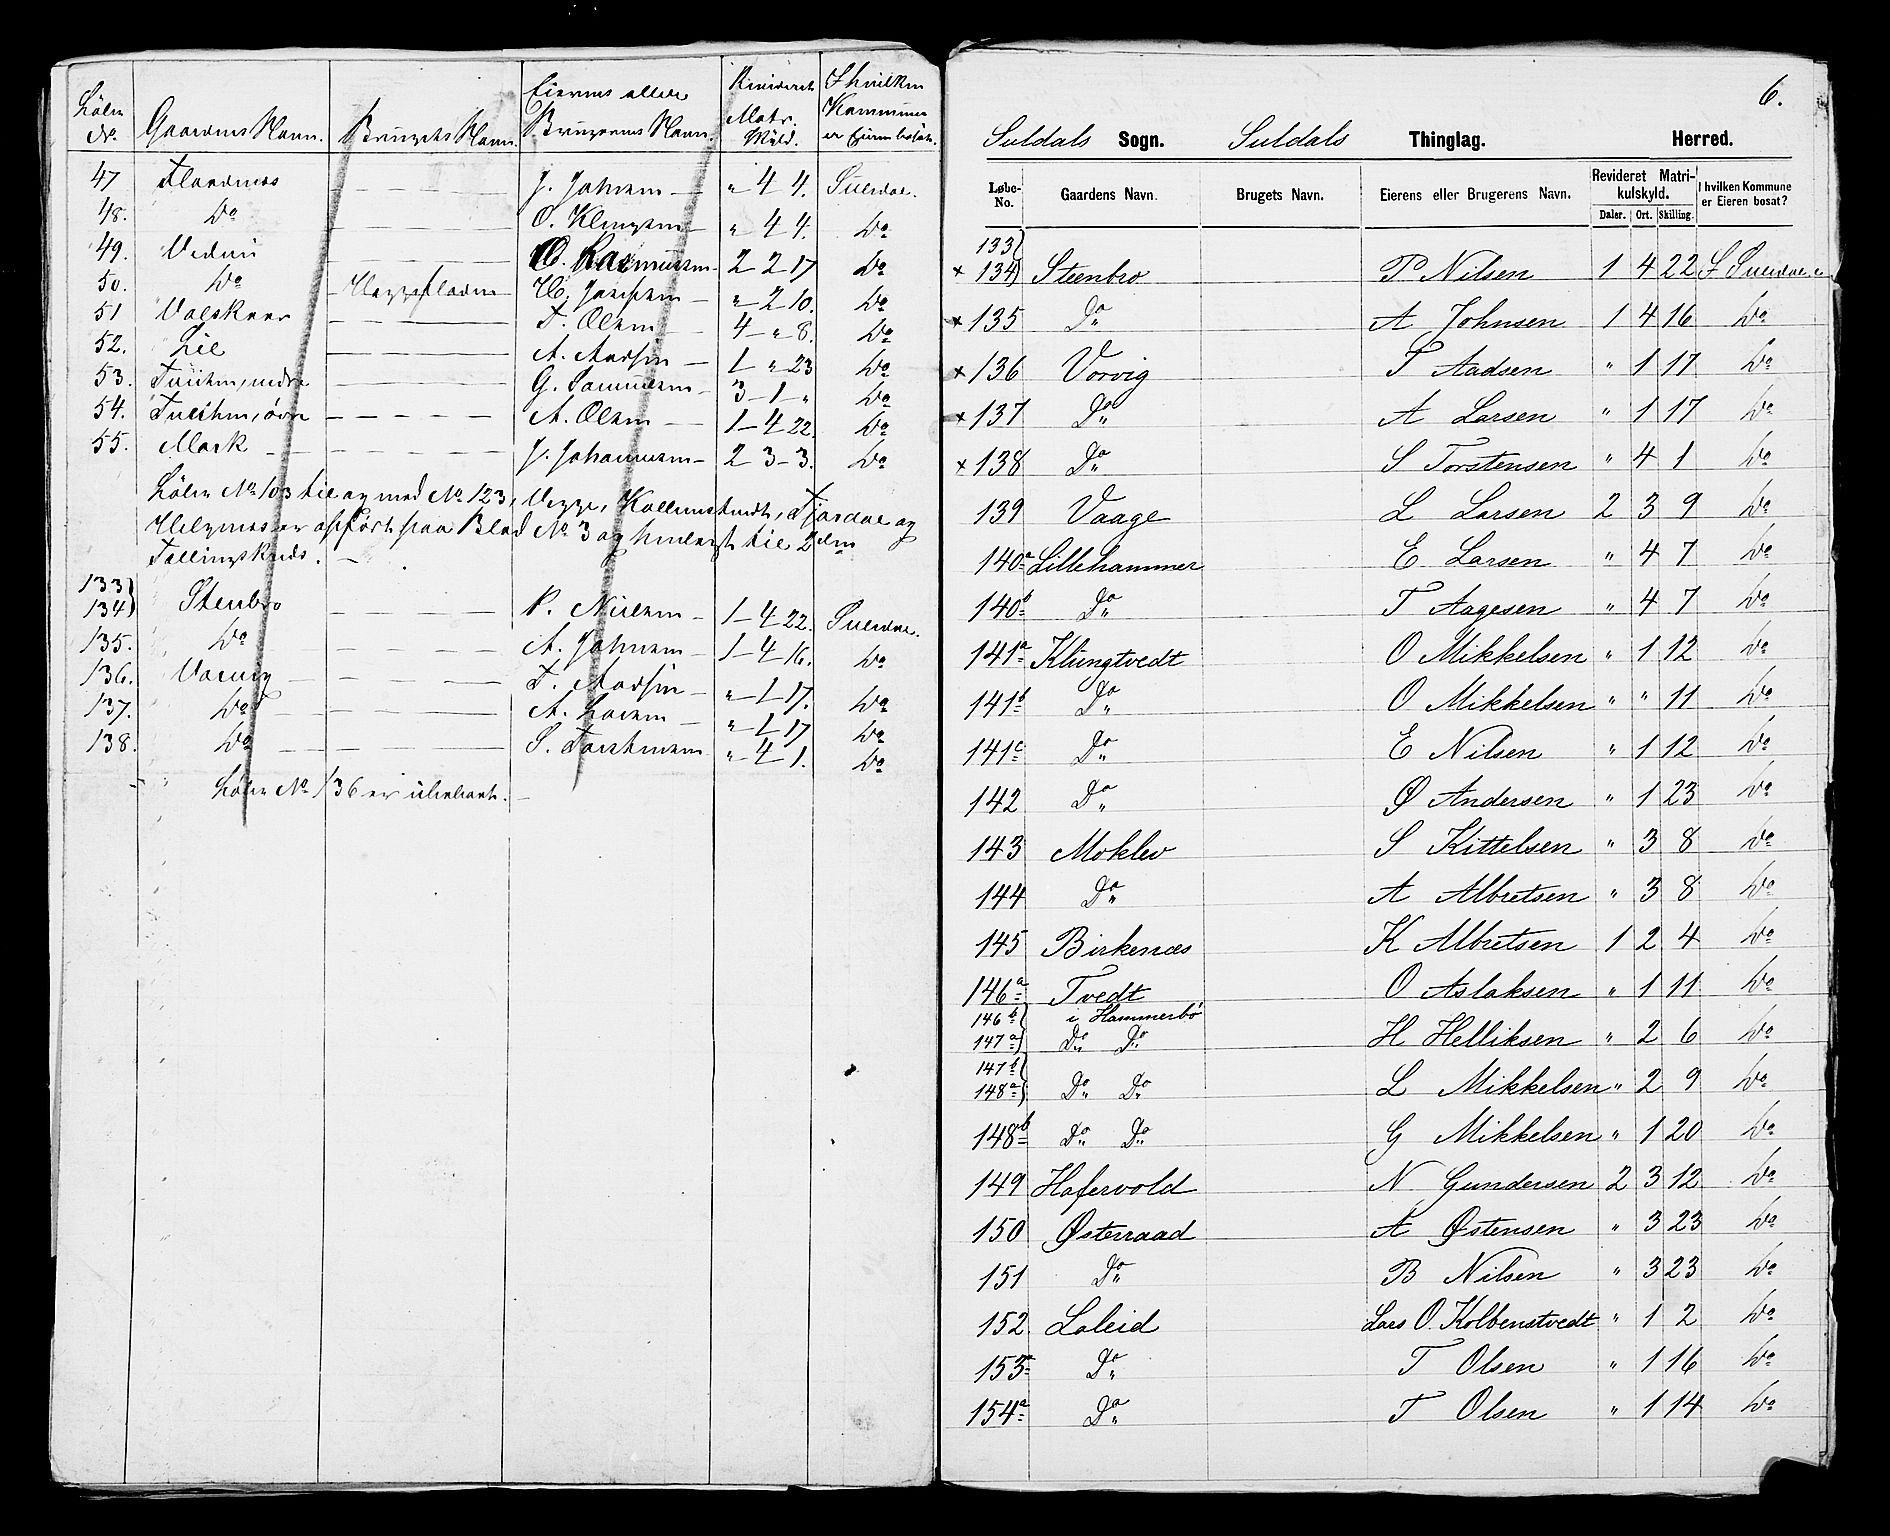 Löbe No. Gaardens Navn. Brugets Navn. Eierens eller Brugerens Navn. Revideret Matr. Skyld. I hvilken Kommune er Eieren bosat.
47 Flaadnæs — J. Johnsen " 4 4. Suldal.
48. Do O. Klingsen " 4 4. Do
49. O. Rasmussen 2 2 17 Do
50. Do H. Josefsen " 2 10. Do
51 — T. Olsen 4 " 8. Do
52. Lie — A. Aadsen 1 " 23 Do
53. — G. 3 1 " Do
54. øvre — A. Olsen 1 4 22. Do
55. Mork — J. Johannesen 2 3 3. Do
Löbe No 103 til og med No 123, Kolbenstvedt, og
er opført paa Blad No 3 og til 2den
Tællingskreds.
133)
134) Stenbro — P. Nilsen 1 4 22. Suldal.
135. Do — A. Johnsen 1 4 16. Do
136. Vorvig — T. Aadsen " 1 17. Do
137. Do — A. Larsen " 1 17 Do
138. Do — S. Torstensen " 4 1. Do
Løbe No 136 er ubeboet.
6.
Suldals Sogn. Suldals Thinglag. Herred.
Løbe-No. Gaardens Navn. Brugets Navn. Eierens eller Brugerens Navn. Revideret Matrikulskyld. I hvilken Kommune er Eieren bosat?
Daler. Ort. Skilling.
133)
× 134) Steenbro P Nilsen 1 4 22 I Suldal
× 135 Do A Johnsen 1 4 16 Do
× 136 Vorvig T Aadsen " 1 17 Do
× 137 Do A Larsen " 1 17 Do
× 138 Do S Torstensen " 4 1 Do
139 Vaage L Larsen 2 3 9 Do
140a Lillehammer E Larsen " 4 7 Do
140b Do T Aagesen " 4 7 Do
141a Klungtvedt O Mikkelsen " 1 12 Do
141b Do O Mikkelsen " " 11 Do
141c Do E Nilsen " 1 12 Do
142 Do Ø Andersen " 1 23 Do
143 Moklev S Kittelsen " 3 8 Do
144 Do A Albretsen " 3 8 Do
145 Birkenæs K Albretsen 1 2 4 Do
146a Tvedt O Aslaksen " 1 11 Do
146b) i Hammerbö
147a) Do Do H Helliksen " 2 6 Do
147b)
148a) Do Do L Mikkelsen " 2 9 Do
148b Do Do G Mikkelsen " 1 20 Do
149 Hafervold N Gundersen 2 3 12 Do
150 Østerraad A Østensen " 3 23 Do
151 Do B Nilsen " 3 23 Do
152. Laleid Lars O. Kolbenstvedt " 1 2 Do
153 Do T Olsen " 1 16 Do
154a Do T Olsen " 1 14 Do